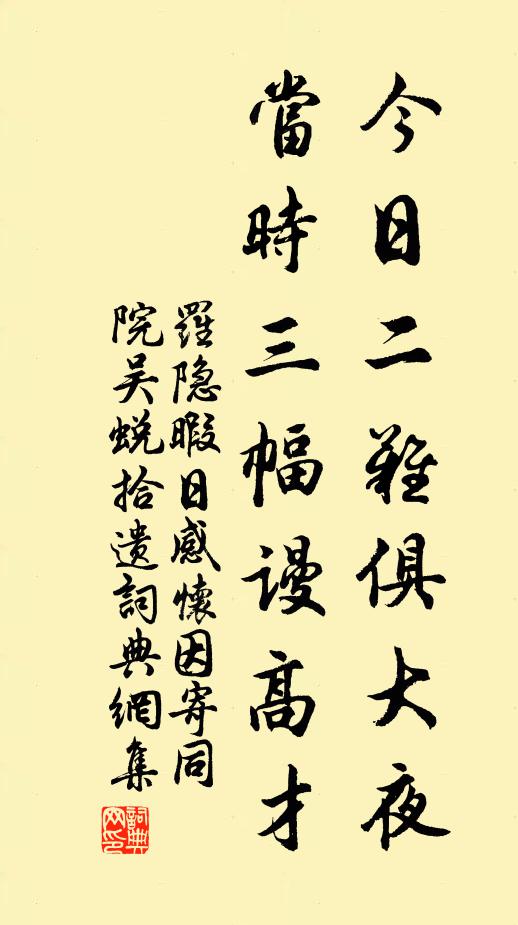 今日二難俱大夜
當時三幅謾高才
羅隐暇日感懷因寄同
院吴蜕拾遺詞典網集
詞典
网印